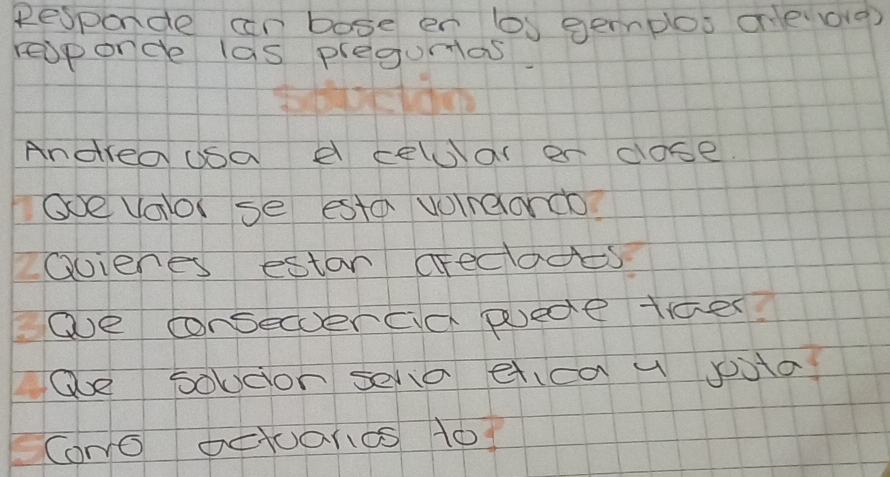 Responde con base en los ejemplos anteriores
responde las preguntas.
Solución
Andrea usa el celular en clase.
1 Que valor se esta vulnerando?
2 Quienes estan afectados?
3 Que consecuencia puede traer?
4 Que solucion seria etica y justa?
5 Como actuarias to?